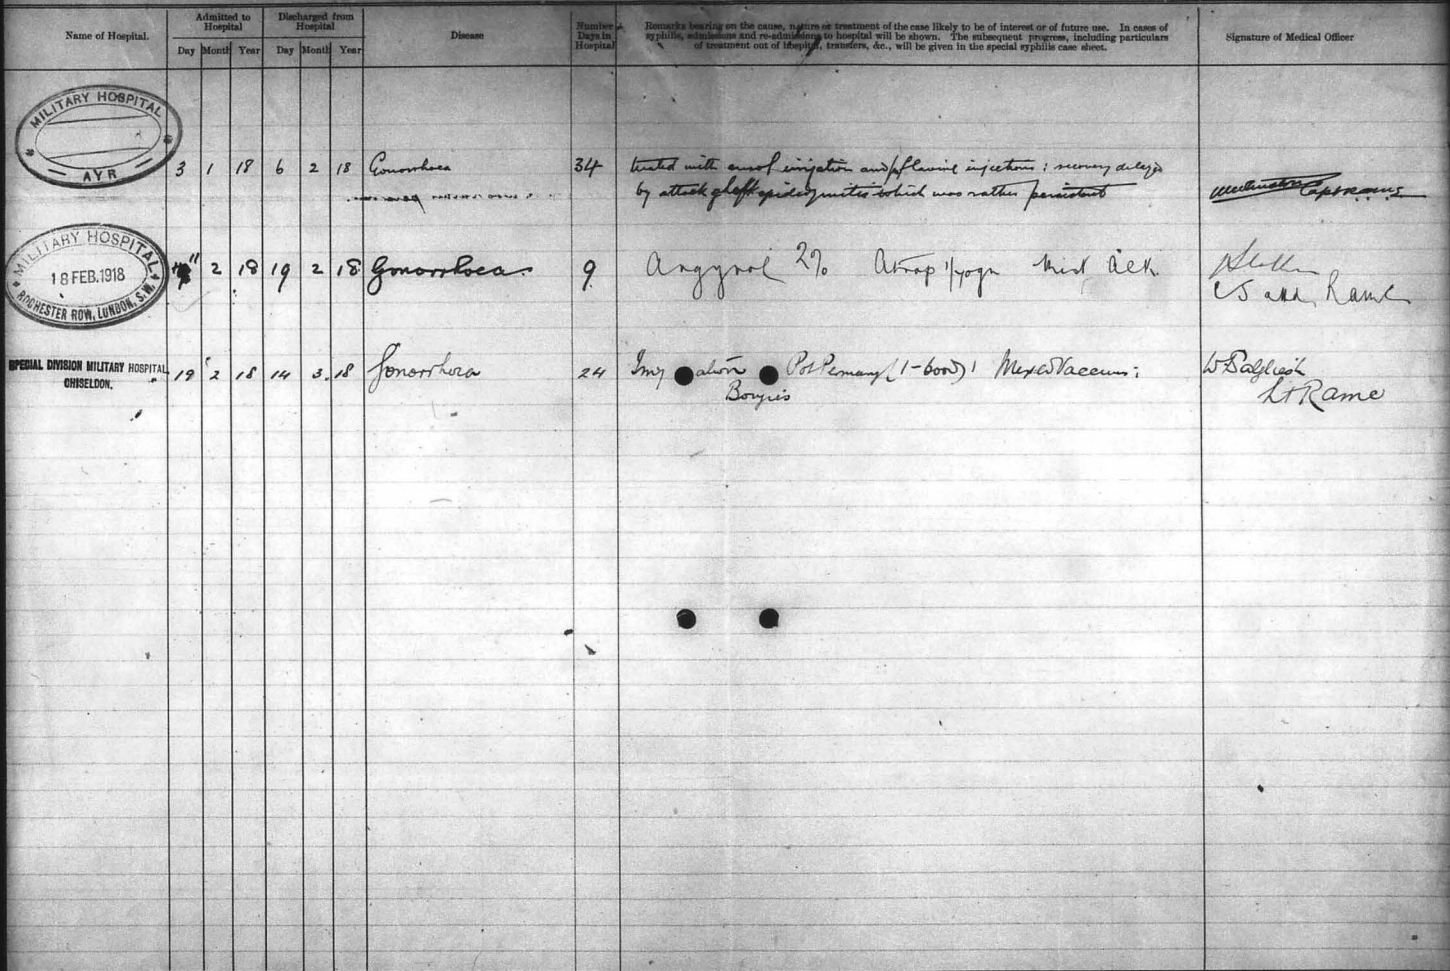 Name of Hospital.
Admitted to Hospital
Discharged from Hospital
Day Month Year Day Month Year
Disease
Number Days in Hospital
Remarks bearing on the cause, nature or treatment of the case likely to be of interest or of future use. In cases of
syphilis, admissions and re-admissions to hospital will be shown. The subsequent progress, including particulars
of treatment out of hospital, transfers, &c., will be given in the special syphilis case sheet.
Signature of Medical Officer
MILITARY HOSPITAL
AYR
3 1 18 6 2 18 Gonorrhoea 34 treated with eusol irrigation and flavine injections : recovery delayed
by attack of left epididymitis which was rather persistent
Capt RAMC
MILITARY HOSPITAL
18 FEB. 1918
ROCHESTER ROW, LONDON, S.W.
2 18 19 2 18 Gonorrhoea 9 Argyrol 2% Mist Alk.
RAMC
SPECIAL DIVISION MILITARY HOSPITAL
CHISELDON.
19 2 18 14 3 18 Gonorrhoea 24 Pot Permang (1-6000) Mixed Vaccines
Bougies
W Dalgliesh
Lt RAMC